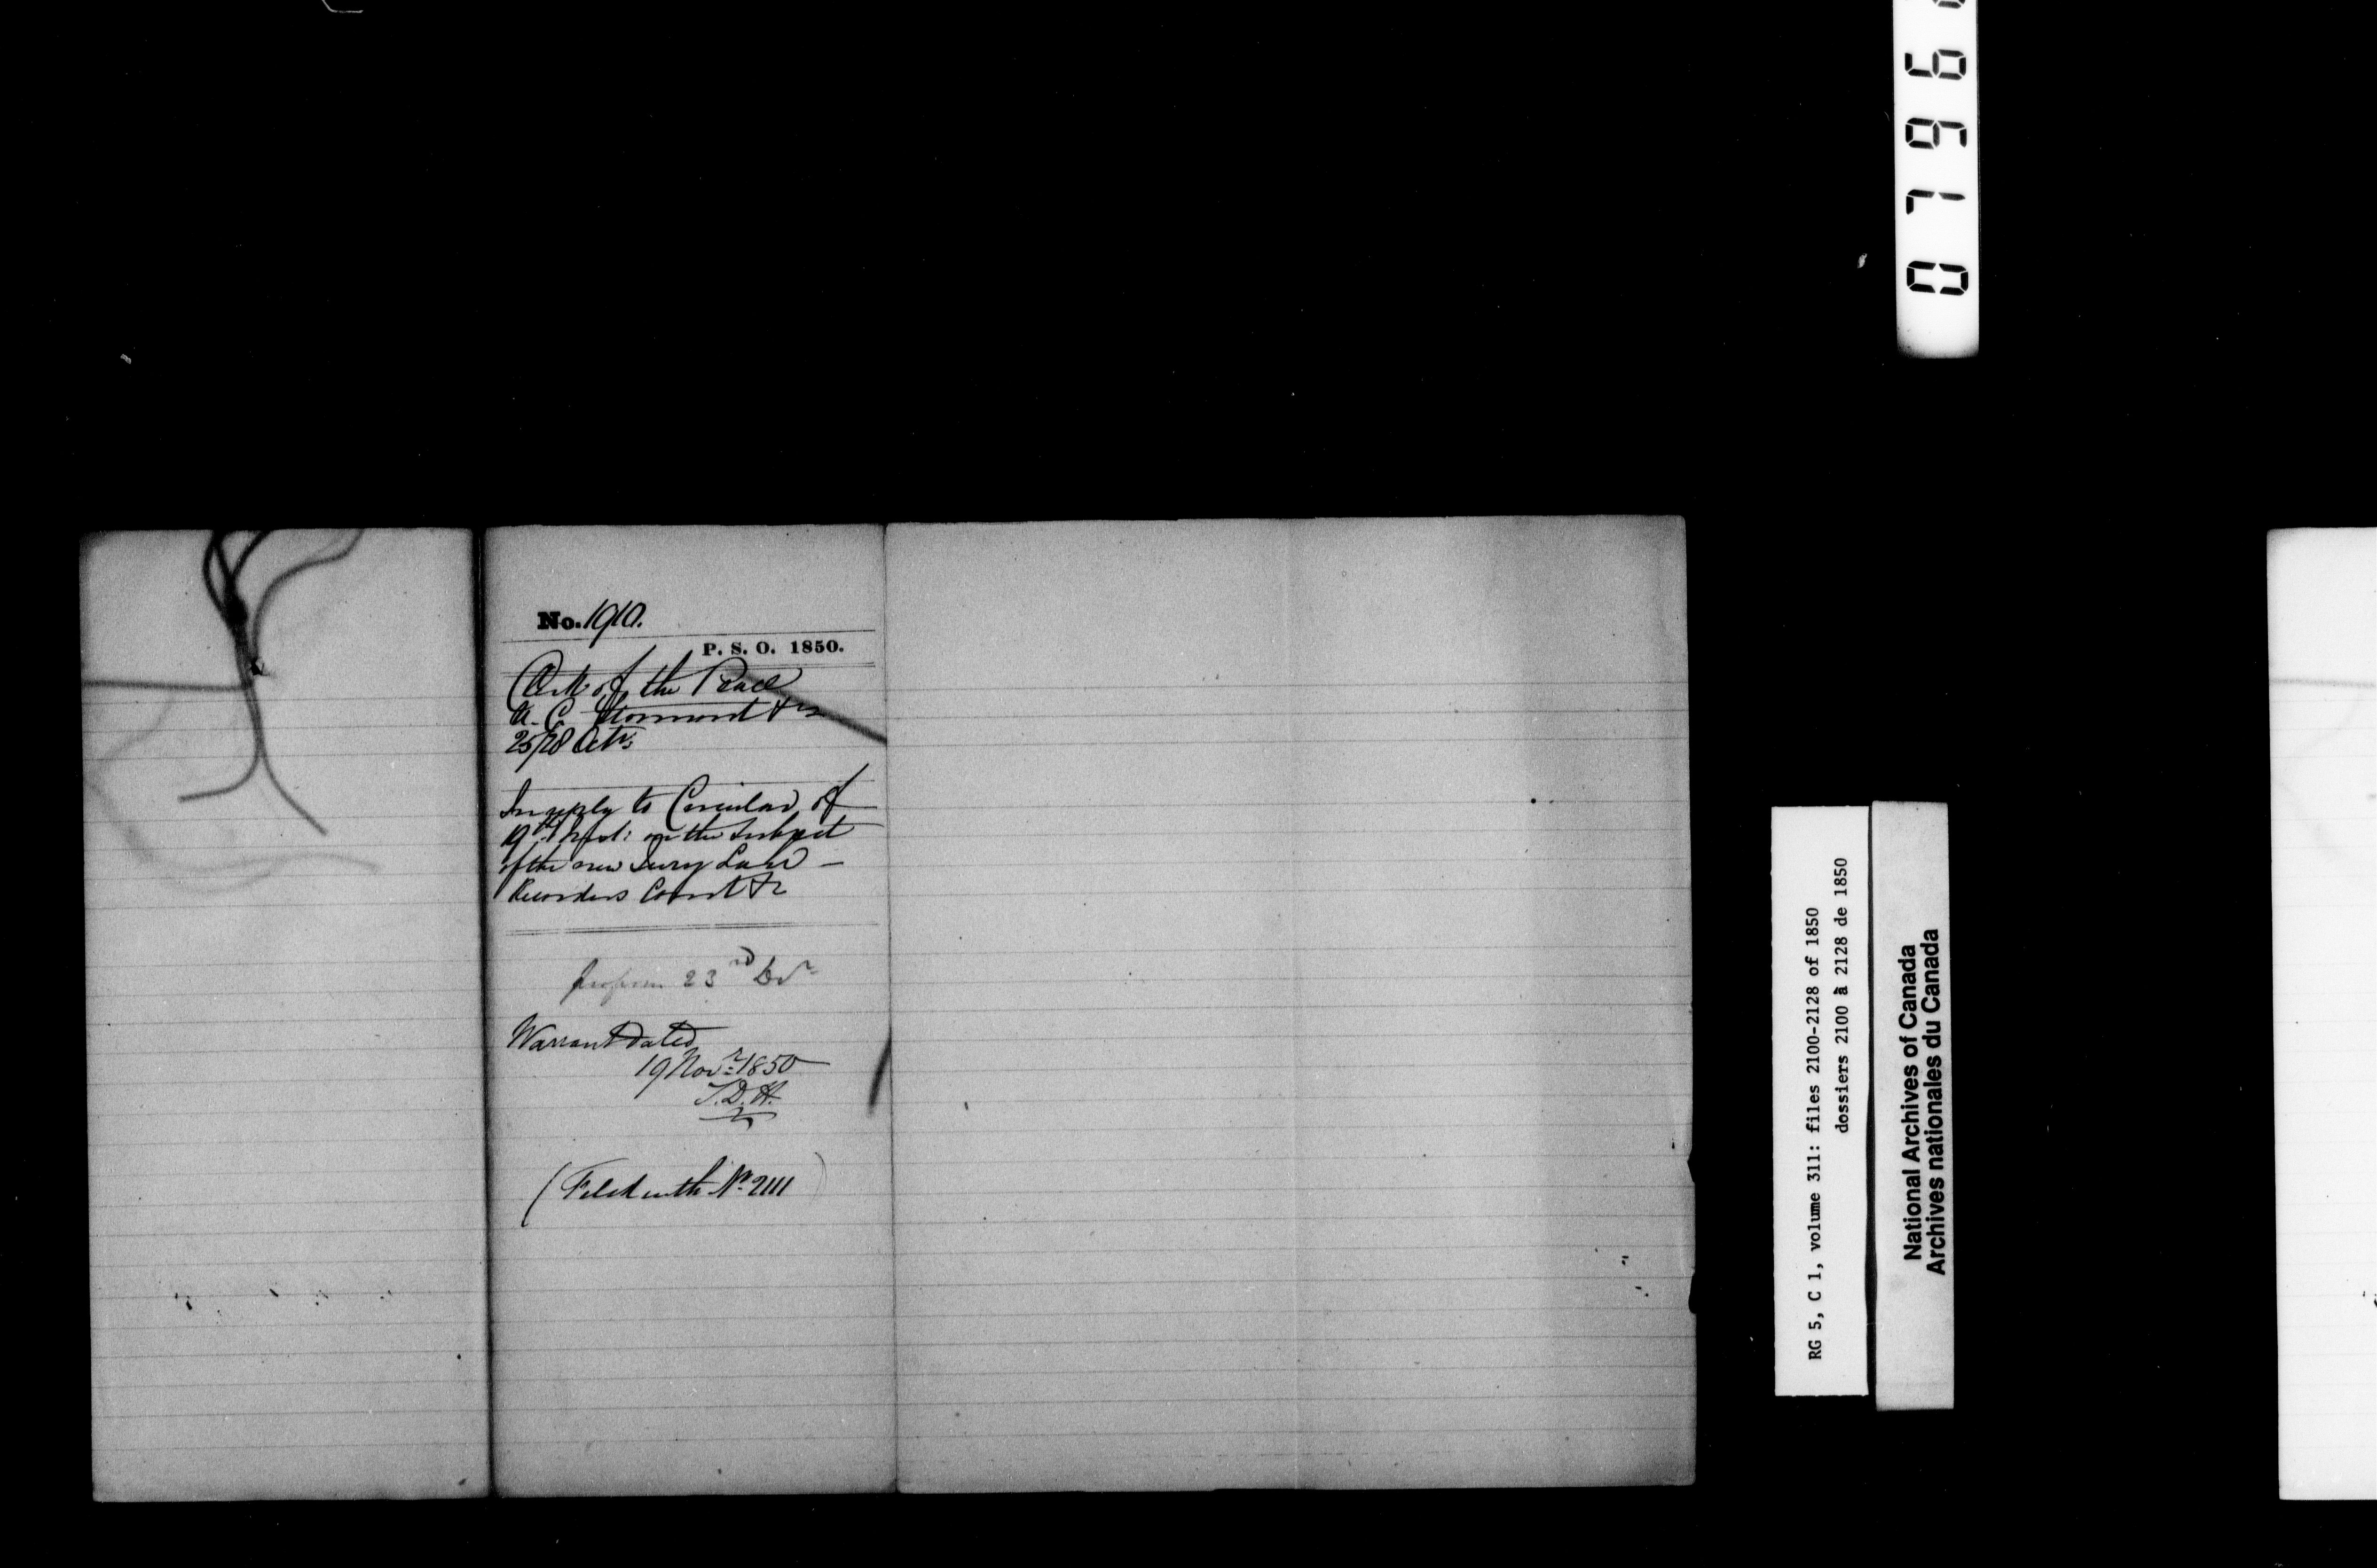 No. 1910.
P. S. O. 1850.
Clerk of the Peace
U. C. Stormont &c
25/28 Octr:
In reply to Circular of
19th Inst: on the subject
of the new Jury Law —
Recorders Court &c
23rd
Warrant dated
19 Novr: 1850
T.D.H.
(Filed with No. 2111)
07966
RG 5, C 1, volume 311: files 2100-2128 of 1850
dossiers 2100 à 2128 de 1850
National Archives of Canada
Archives nationales du Canada